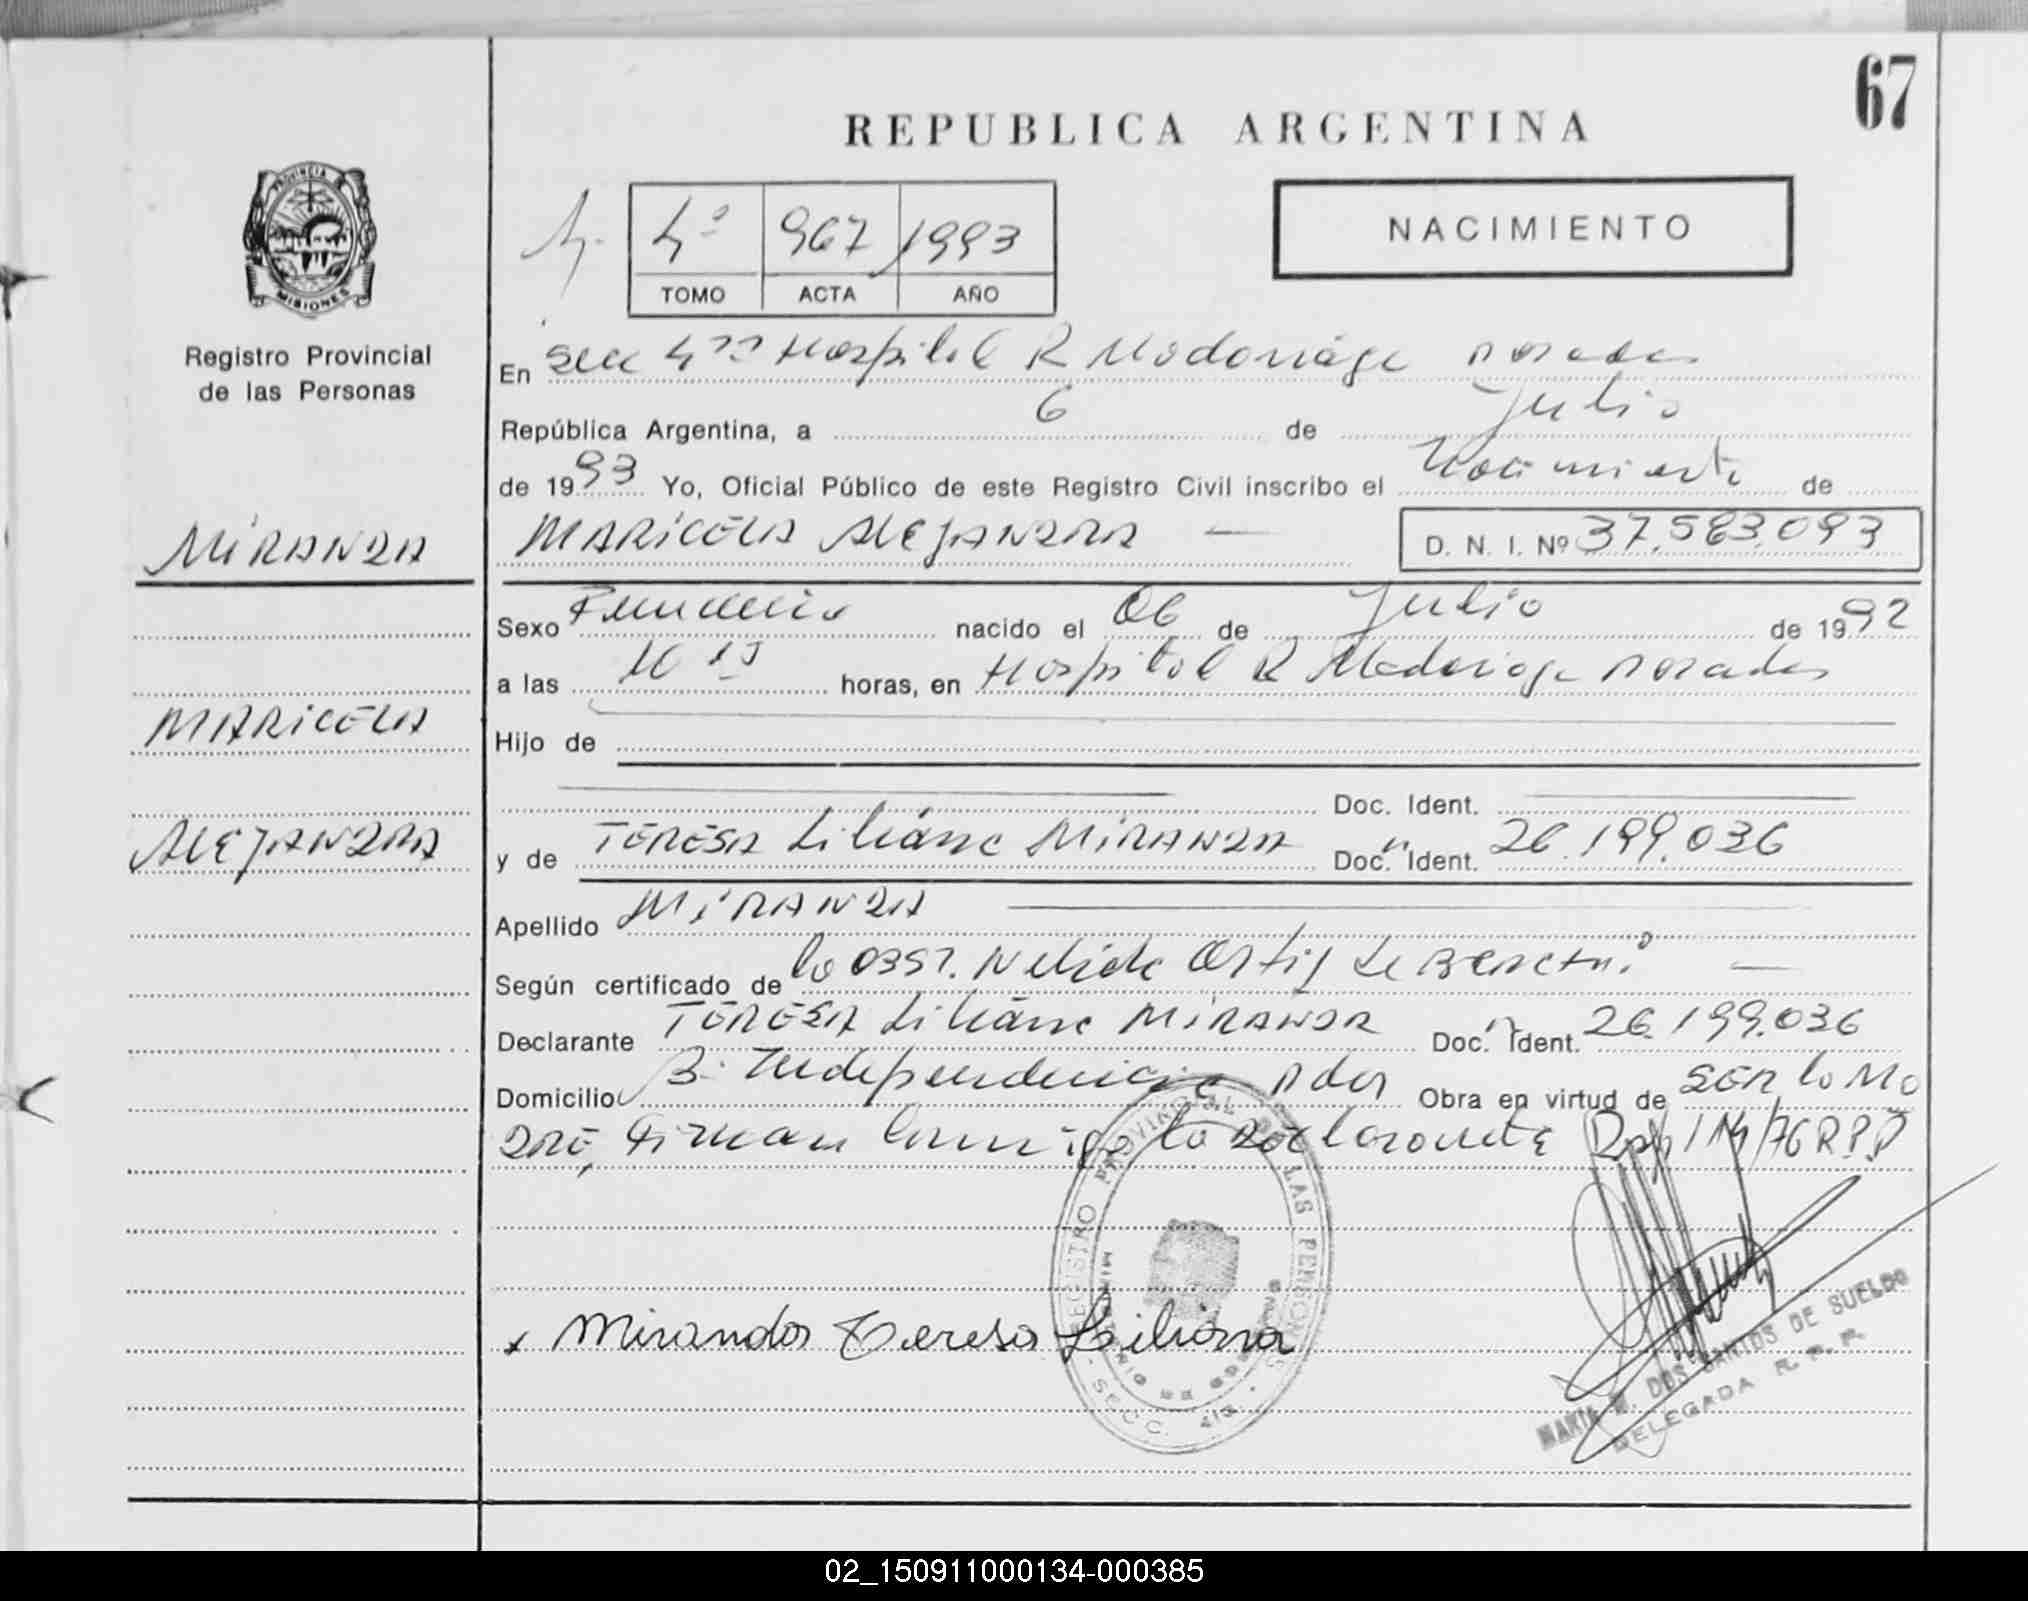 67
REPUBLICA ARGENTINA
PROVINCIA DE
MISIONES
4º 967 1993
TOMO ACTA AÑO
NACIMIENTO
Registro Provincial
de las Personas
En Secc 4ta Hospital R Madariaga Posadas
República Argentina, a 6 de Julio
de 1993 Yo, Oficial Público de este Registro Civil inscribo el Nacimiento de
MIRANDA
MARICELA ALEJANDRA — D. N. I. Nº 37.583.093
Sexo Femenino nacido el 06 de Julio de 1992
a las 10 15 horas, en Hospital R Madariaga Posadas
MARICELA
Hijo de
Doc. Ident.
ALEJANDRA
y de TERESA Liliana MIRANDA Doc. Ident. 26.199.036
Apellido MIRANDA
Según certificado de la OBST. Nelida Ortiz de —
Declarante TERESA Liliana MIRANDA Doc. Ident. 26.199.036
Domicilio B. Independencia Pdas Obra en virtud de SER la MA
DRE, Firman conmigo la Declarante 114/76 R.P.P
REGISTRO PROVINCIAL DE LAS PERSONAS
MINISTERIO DE GOBIERNO
SECC. 4ta.
x Miranda Teresa Liliana
MARIA DOS SANTOS DE SUELDO
DELEGADA R. P. P.
02_150911000134-000385